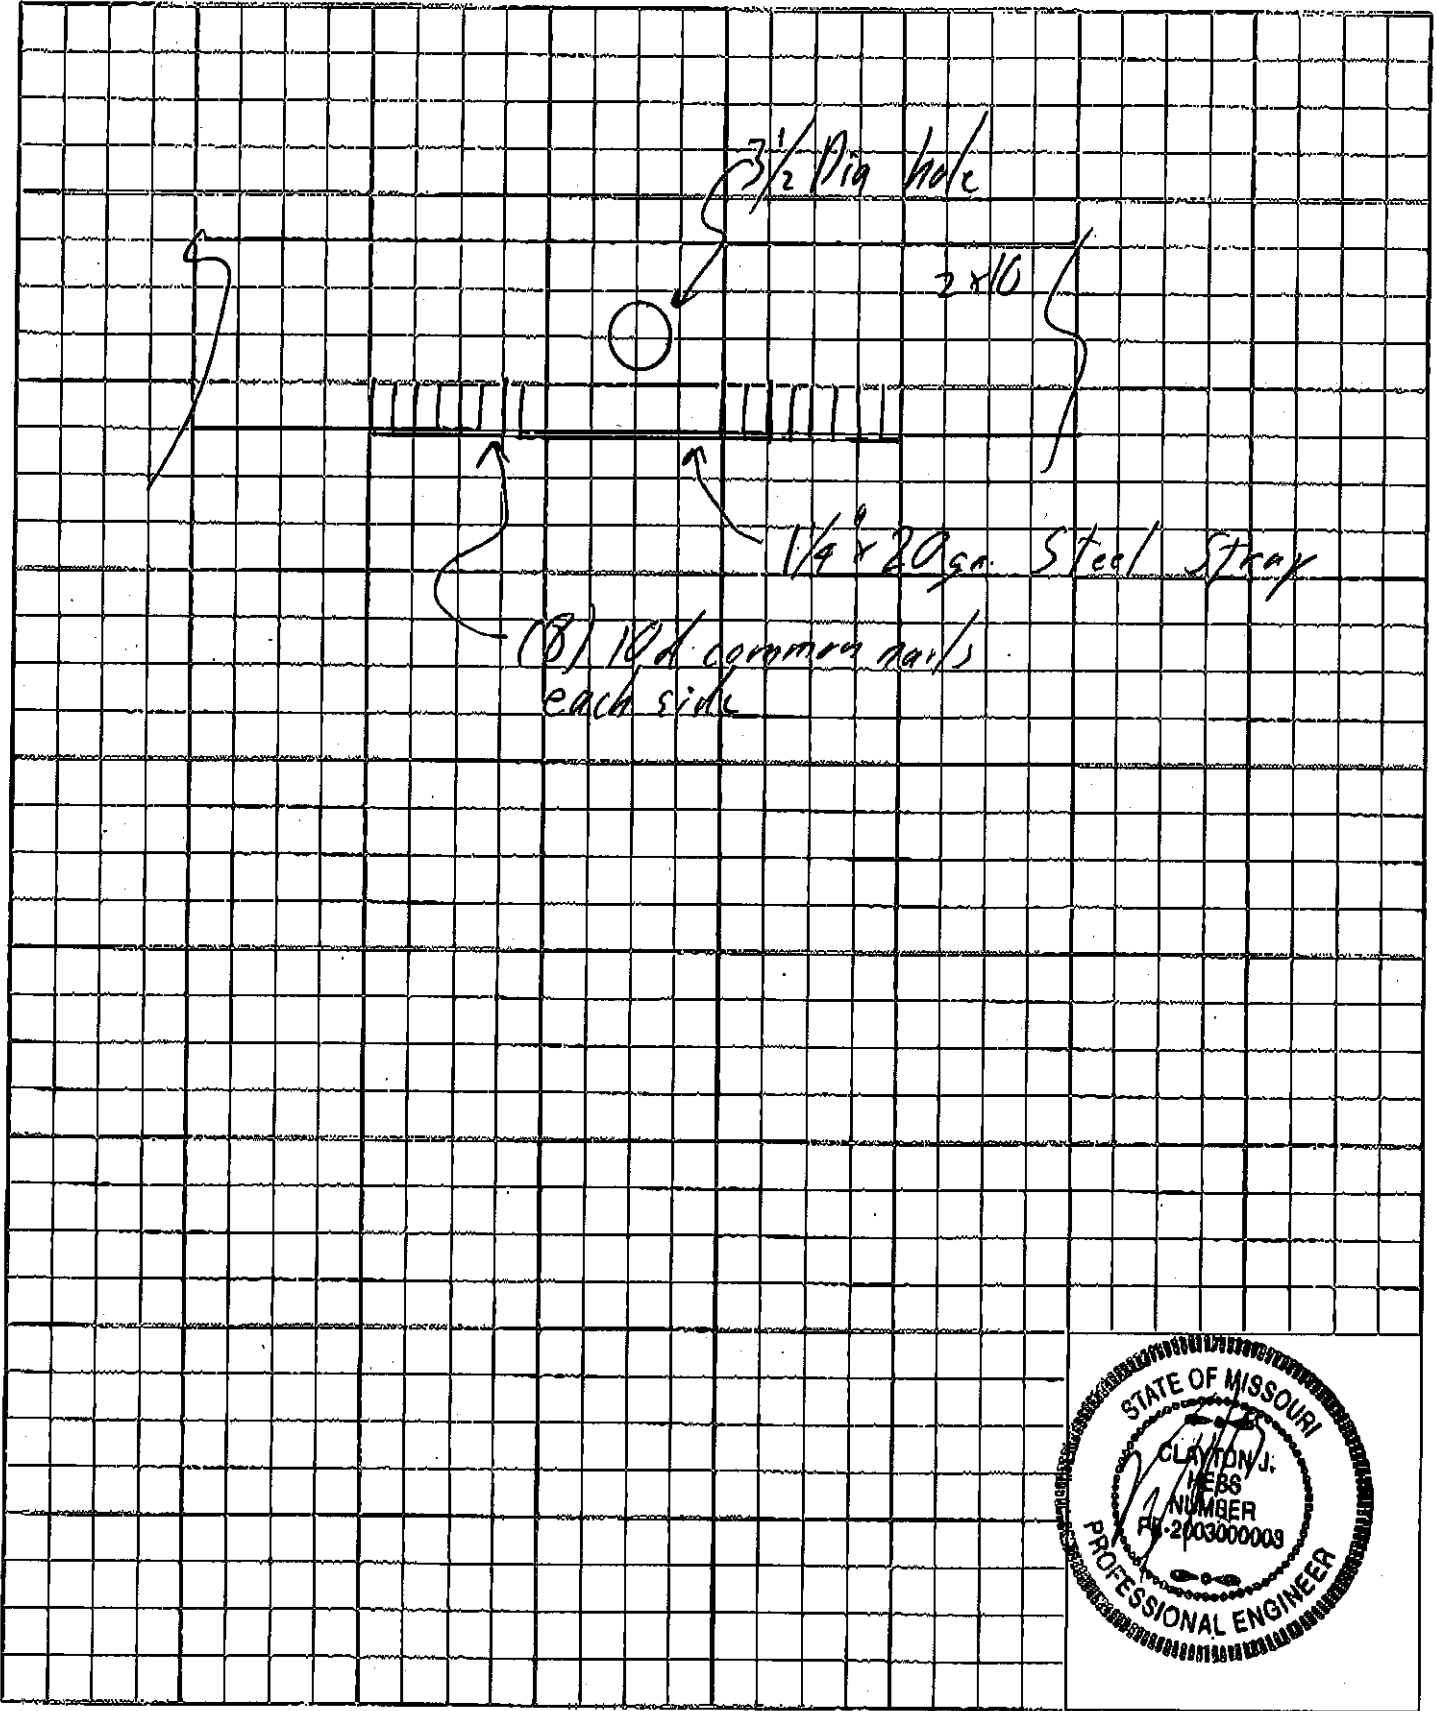 3 1/2 Dia hole
2x10
1 1/4" x 20 ga. Steel Strap
(8) 10d common nails
each side
STATE OF MISSOURI
CLAYTON J.
HESS
NUMBER
PE-2003000003
PROFESSIONAL ENGINEER